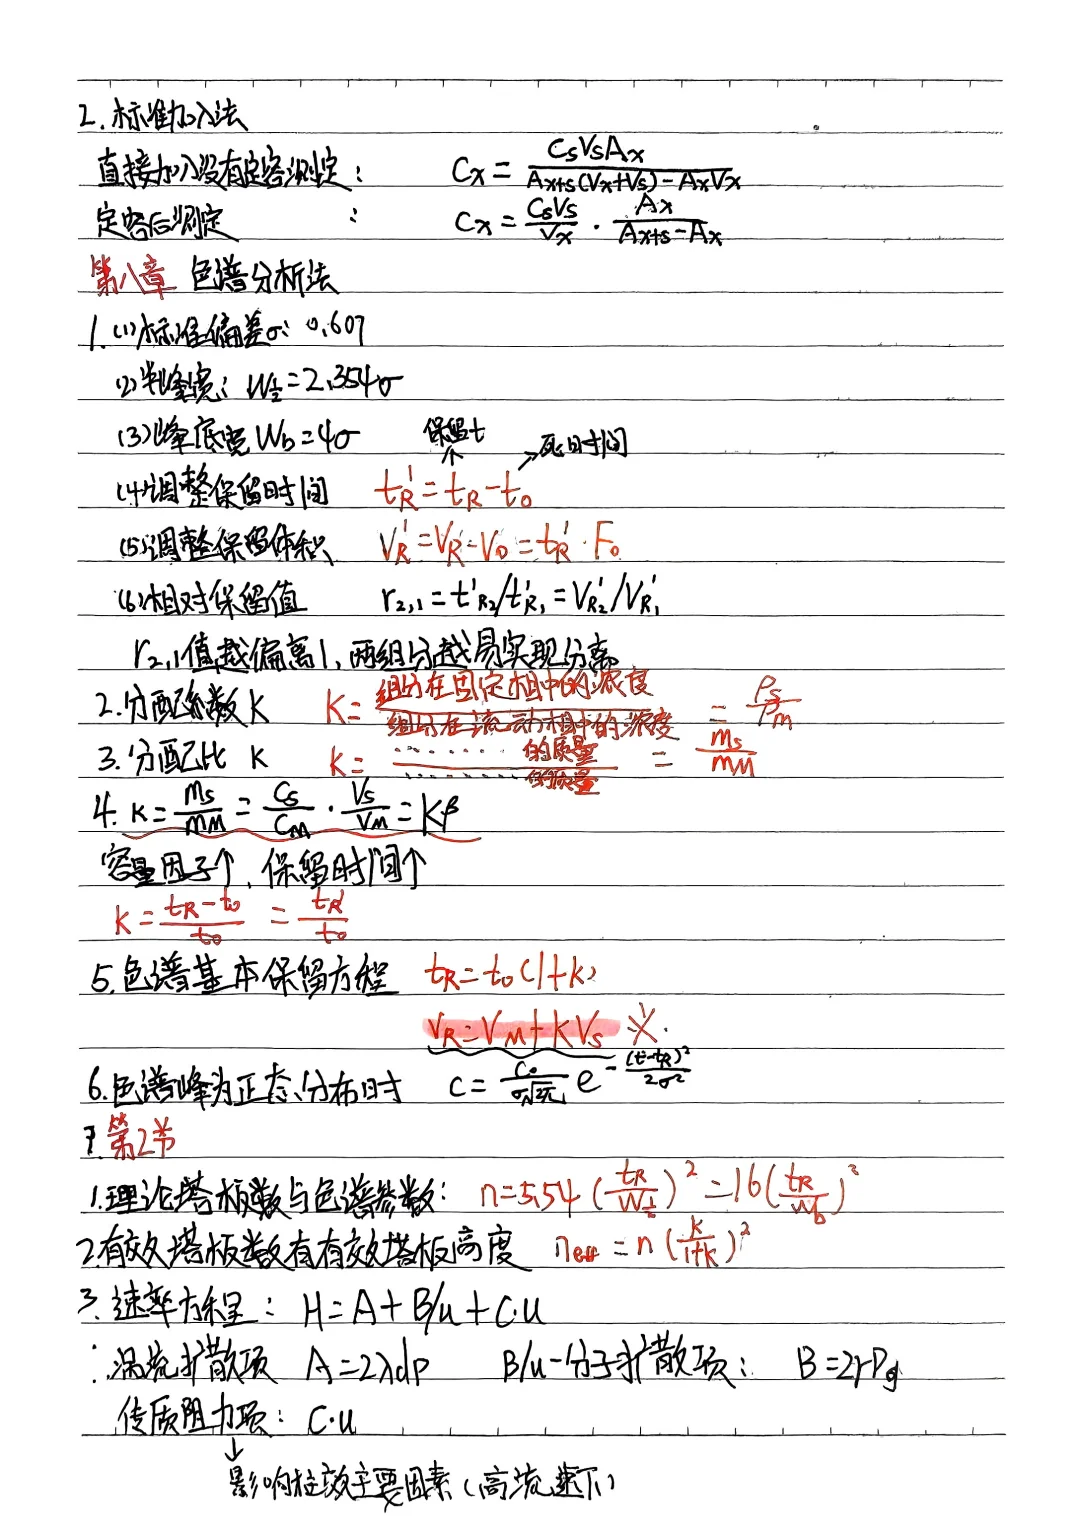 2. 标准加入法
直接加入没有定容测定: Cx = CsVsAx / Ax+s(Vx+Vs) - AxVx
定容后测定 : Cx = CsVs/Vx · Ax/Ax+s-Ax
第八章 色谱分析法
1. (1)标准偏差σ: 0.607
(2)半峰宽: W½=2.354σ
(3)峰底宽 Wb=4σ 保留t 死时间
(4)调整保留时间 tR'=tR-t0
(5)调整保留体积 VR'=VR-V0=tR'·F0
(6)相对保留值 r2,1=t'R2/t'R1=VR2'/VR1'
r2,1值越偏离1,两组分越易实现分离
2. 分配系数K K=组分在固定相中的浓度/组分在流动相中的浓度 = ρs/ρm
3. 分配比 K k=......的质量/......的质量 = ms/mM
4. K=ms/mM=Cs/CM·Vs/VM=Kβ
容量因子↑, 保留时间↑
k=tR-t0/t0 = tR'/t0
5. 色谱基本保留方程 tR=t0(1+k)
VR=VM+KVs
6. 色谱峰为正态分布时 C=C0/σ√2π e^-(t-tR)²/2σ²
第2节
1. 理论塔板数与色谱参数: n=5.54(tR/W½)²=16(tR/Wb)²
2. 有效塔板数有有效塔板高度 neff=n(k/1+k)²
3. 速率方程: H=A+B/u+C·u
∴涡流扩散项 A=2λdp B/u-分子扩散项: B=2rDg
传质阻力项: C·u
↓
影响柱效主要因素(高流速下)